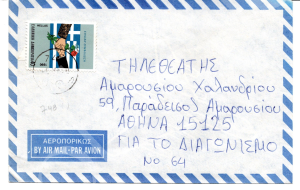 ΤΗΛΕΘΕΑΤΗΣ
Αμαρουσίου Χαλανδρίου
59, Παράδεισος Αμαρουσίου
ΑΘΗΝΑ 15125
ΓΙΑ ΤΟ ΔΙΑΓΩΝΙΣΜΟ
Νο 64
ΑΕΡΟΠΟΡΙΚΩΣ
BY AIR MAIL-PAR AVION